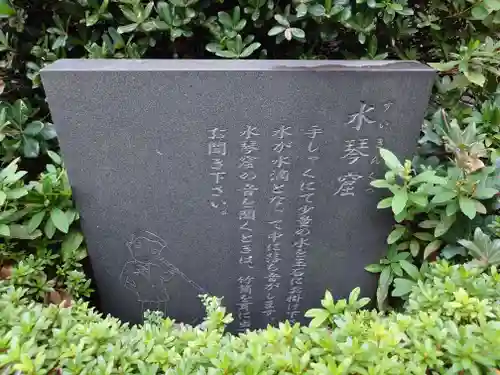 水琴窟
すいきんくつ
手しゃくにて少量の水を玉石にお掛け
水が水滴となって中に落ちながします
水琴窟の音を聞くときは、竹筒を耳に
お聞き下さい。